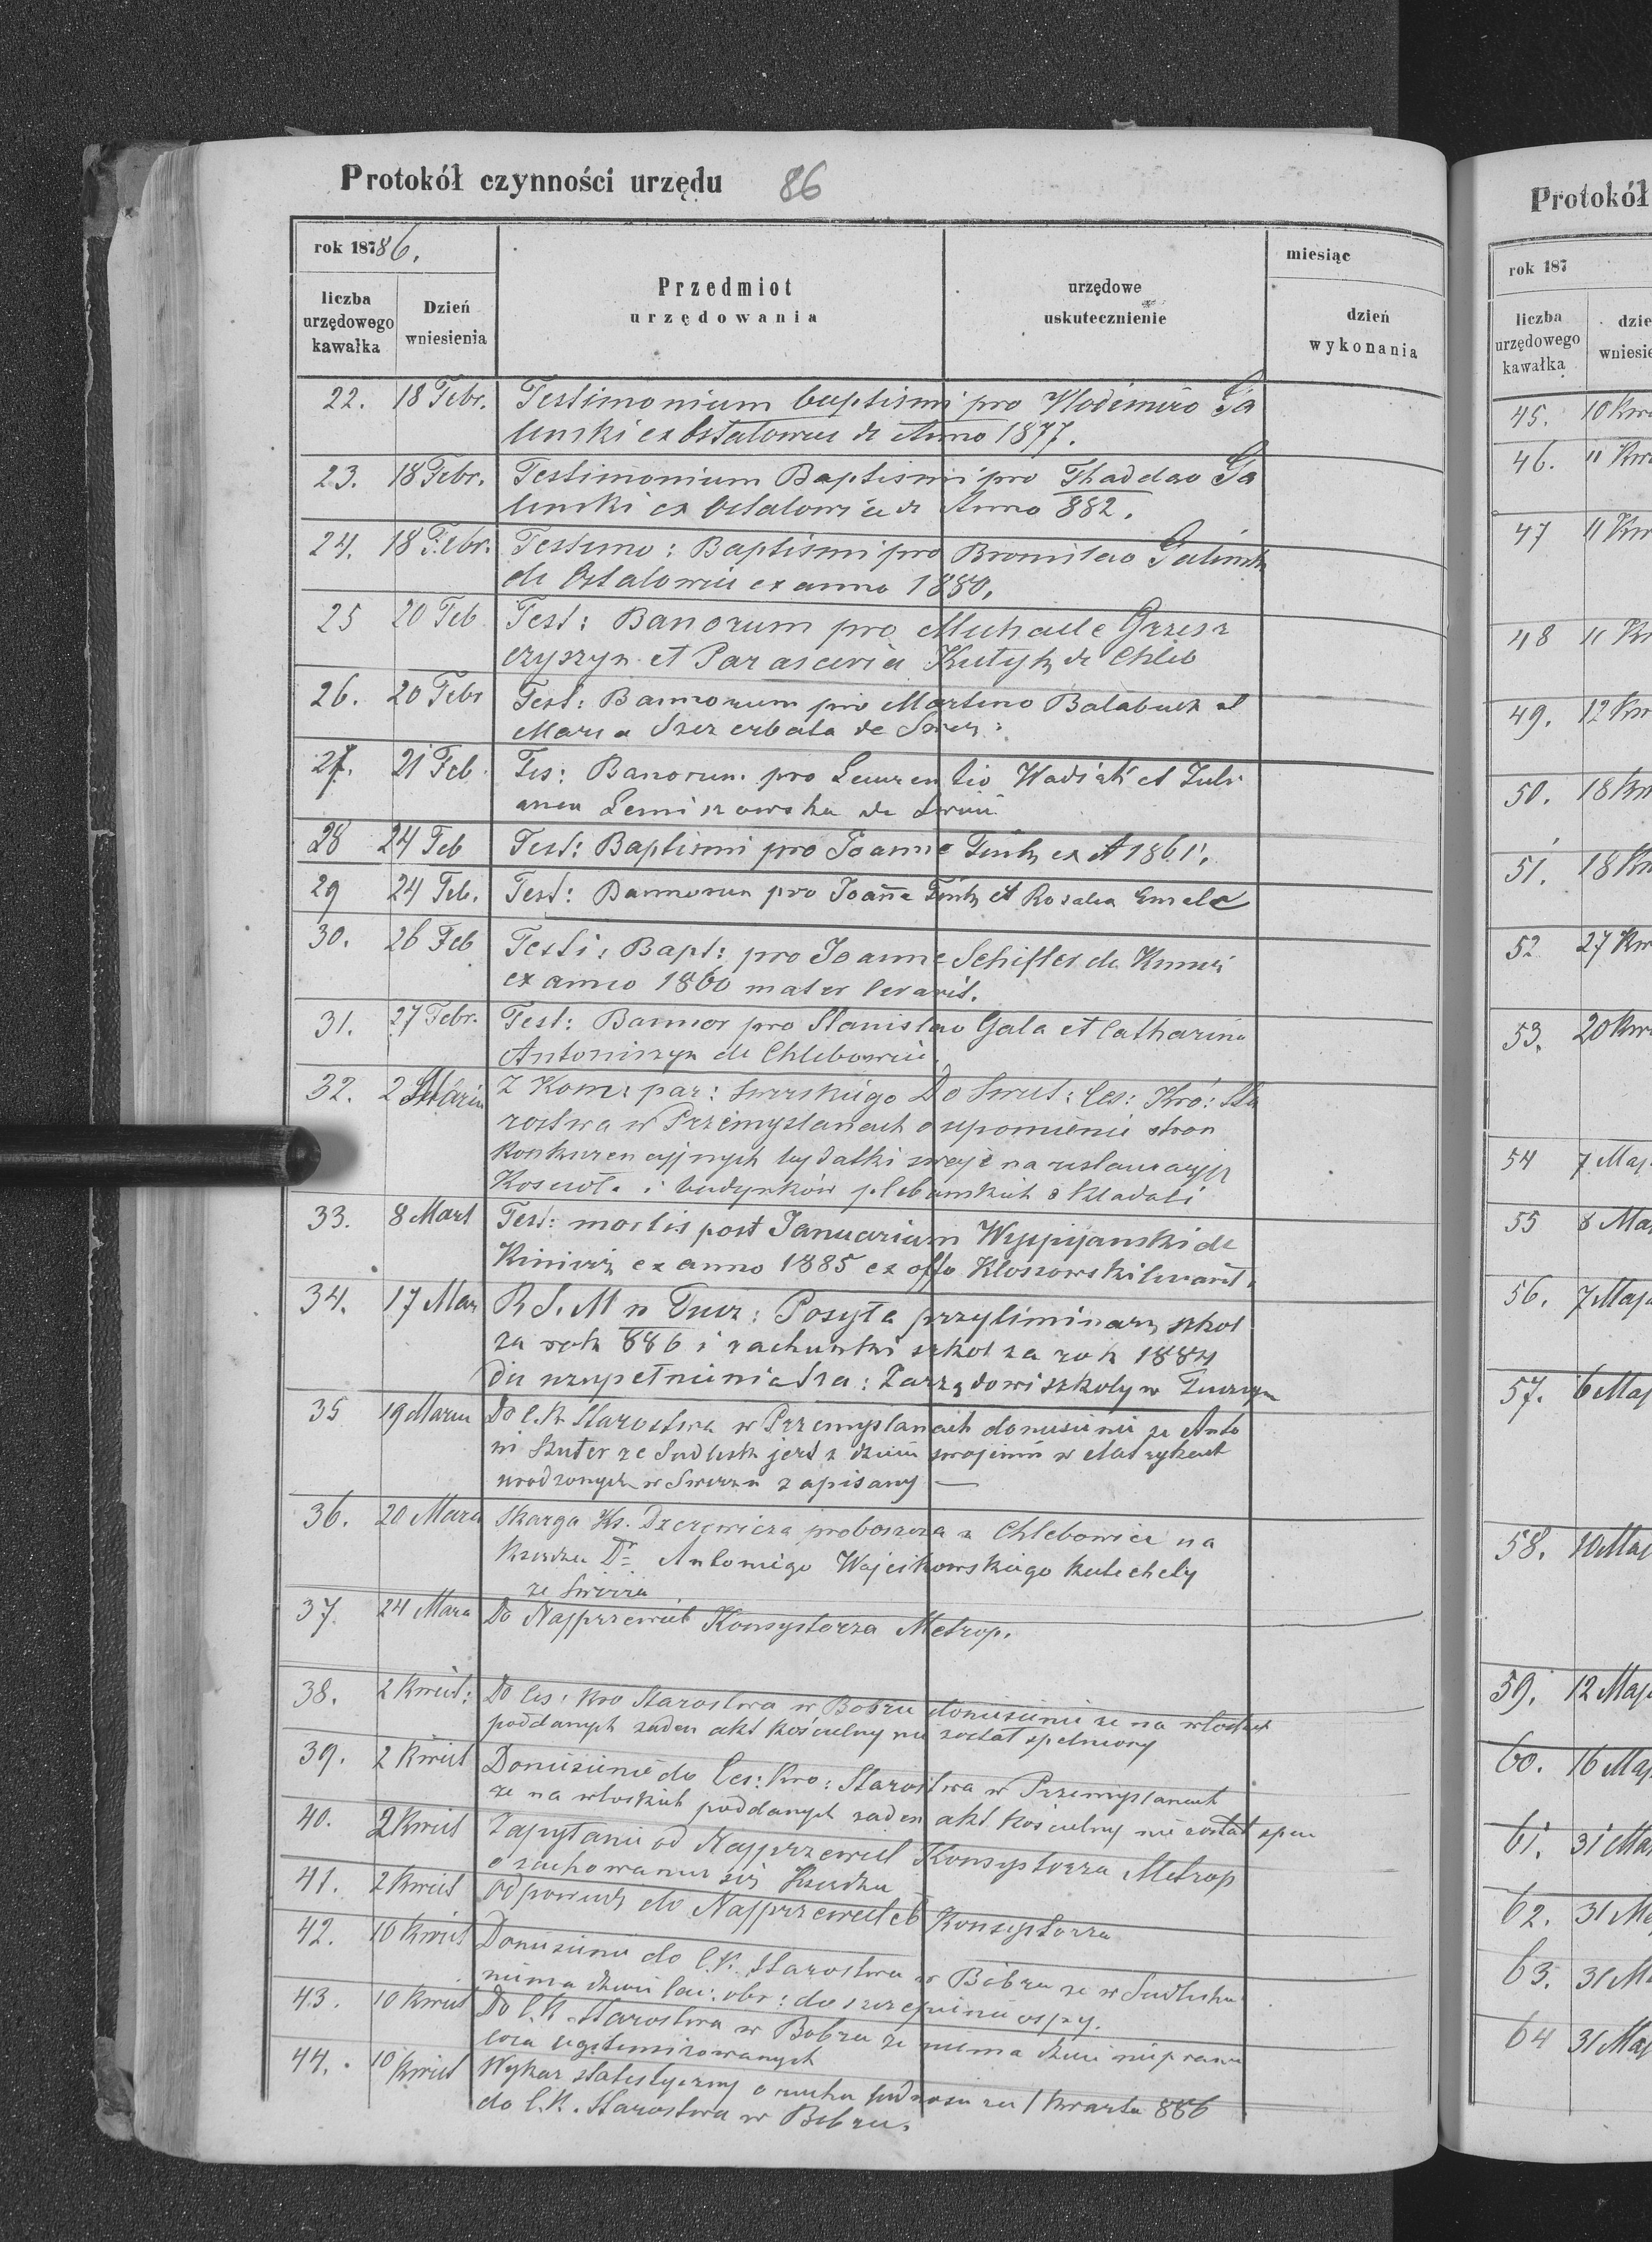 Protokół czynności urzędu 86
rok 18786.
miesiąc
liczba urzędowego kawałka
Dzień wniesienia
Przedmiot urzędowania
urzędowe uskutecznienie
dzień wykonania
22. 18 Febr. Testimonium baptismi pro Wlodimiro Ga
linski ex Ostalowice de Anno 1877.
23. 18 Febr. Testimonium Baptismi pro Thaddao Ga
linski ex Ostalowice de Anno 882.
24. 18 Febr. Testimo: Baptismi pro Bronislao Galinsk
de Ostalowice ex anno 1880.
25 20 Feb Test: Banorum pro Michaele Grzesz
czyszyn et Parascevia Kutyk de Chleb
26. 20 Febr Test: Bannorum pro Martino Balabuch et
Maria Szczerbata de Swirz:
27. 21 Feb. Tes: Banorum pro Laurentio et Juli
anna de
28 24 Feb Test: Baptismi pro Joanne ex A 1861.
29 24 Feb. Test: Bannorum pro Joanne et Rosalia
30. 26 Feb Testi: Bapt: pro Joanne Schifler de
ex anno 1860 mater levavit.
31. 27 Febr. Test: Bannor pro Stanislao Gala et Catharina
Antoniszyn de Chlebowice.
32. 2 Marca Z Kom: par: Swirskiego Do Swiet: Ces: Kró: Sta
rostwa w Przemyslanach o upomnienie stron
konkurencyjnych by datki swoje na restauracyję
Kościoł. i budynków plebanskich składali
33. 8 Mart Test: mortis post Januarium Wyspijanski de
ex anno 1885 ex offo Kloszowski levavit.
34. 17 Mar R. S. M w : Posyła przyliminarz szkol
za rok 886 i rachunki szkol za rok 1884
do uzupełnienia : Zarządowi szkoly w
35 19 Marca Do C. K. Starostwa w Przemyslanach doniesienie ze Anto
ni ze jest z swojemi w Matrykach
urodzonych w Swirzu zapisany —
36. 20 Marca Skarga Ks. proboszcza z Chlebowice na
Ksiedza Dr. Antoniego Wojcikowskiego katechety
ze Swirza
37. 24 Mara Do Najprzewiel Konsystorza Metrop.
38. 2 Kwiet: Do Ces: Kro Starostwa w Bobru doniesienie ze na włoskich
poddanych zaden akt kościelny nie zostal spelniony
39. 2 Kwiet Doniesienie do Ces: Kro: Starostwa w Przemyslanach
ze na włoskich poddanych zaden akt kościelny nie zostal spen
40. 2 Kwiet Zapytanie od Najprzewiel Konsystorza Metrop
o zachowaniu się Ksiedza
41. 2 Kwiet Odpowiedz do Najprzewieleb Konsystorza
42. 10 Kwiet Doniesienie do C. K. Starostwa w Bóbru ze w
niema dzieci lac: obr: do szczepienia ospy.
43. 10 Kwiet Do C. K. Starostwa w Bobru ze niema dzieci
legitimizowanych
44. 10 Kwiet Wykaz statistyczny o ruchu ludnosci za I Kwartal 886
do C. K. Starostwa w Bobru.
Protokół
rok 187
liczba urzędowego kawałka
dzie
wniesie
45. 10 Kwi
46. 11 Kwi
47 11 Kwi
48 11 Kwi
49. 12 Kwi
50. 18 Kwi
51. 18 Kwi
52 27 Kwi
53. 20 Kwi
54 7 Maj
55 8 Maj
56. 7 Maja
57. 6 Maj
58. 10 Maj
59. 12 Maj
60. 16 Maj
61. 31 Maj
62. 31 Ma
63. 31 Ma
64 31 Maj